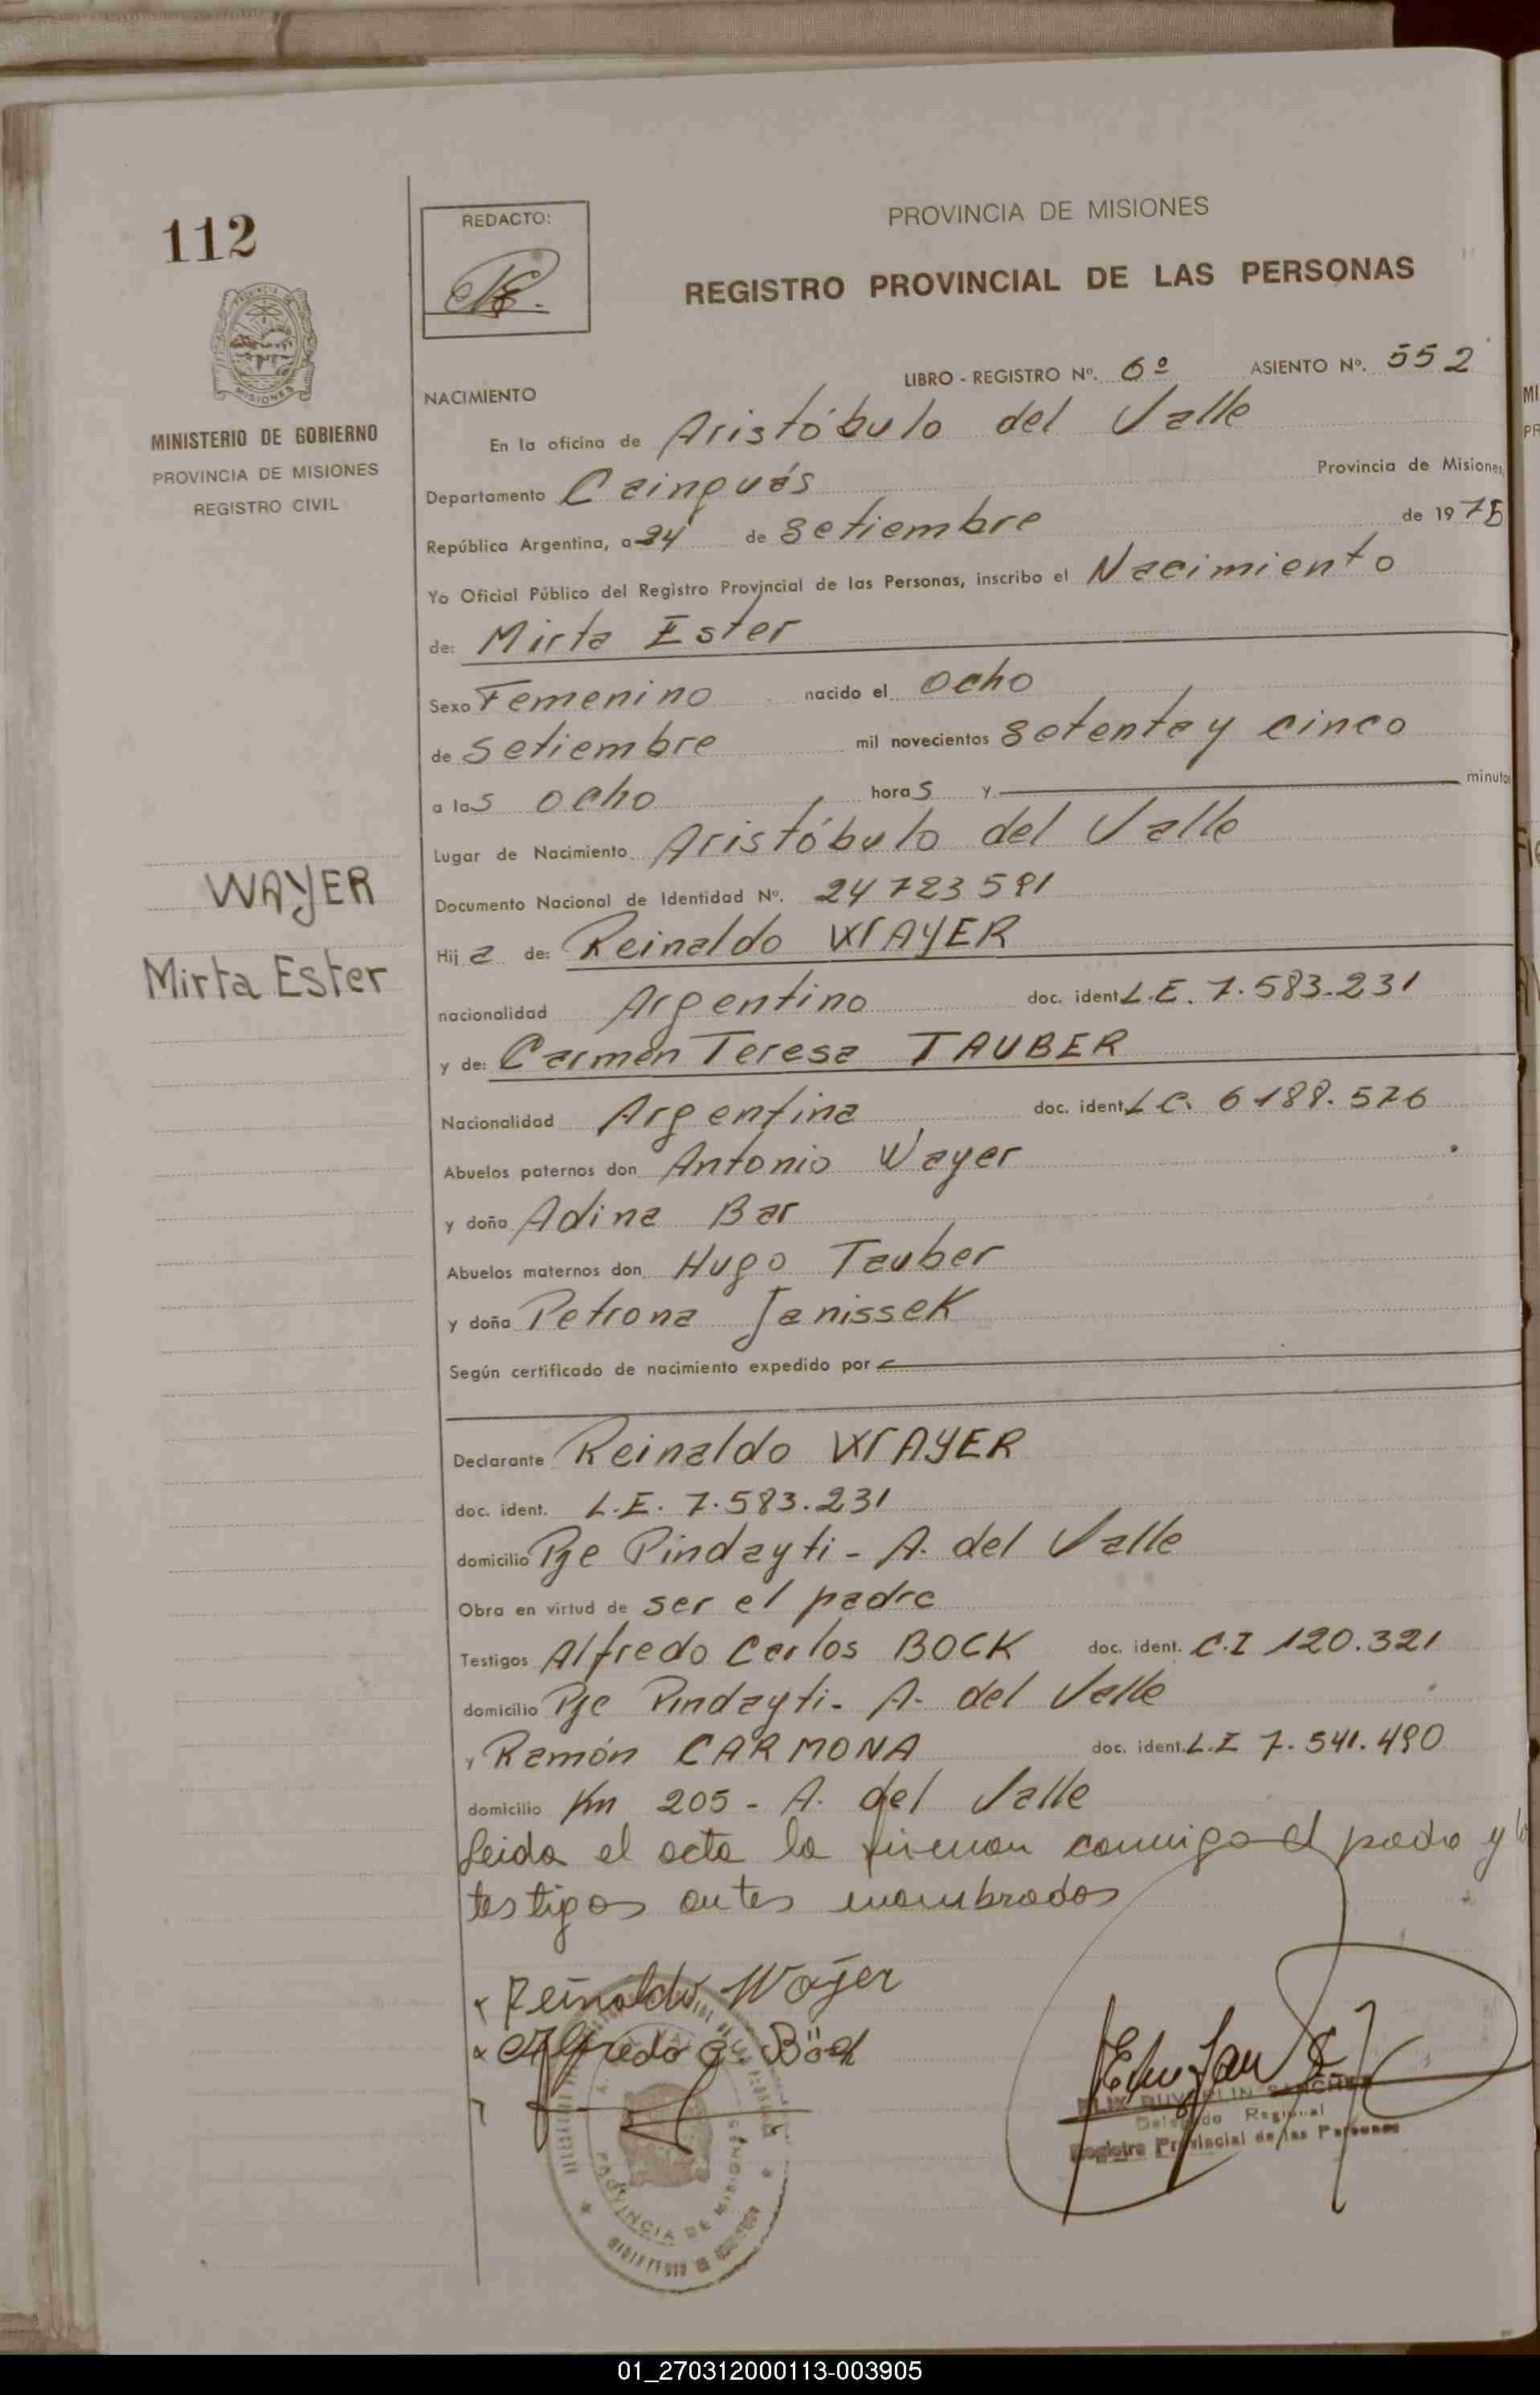 112
PROVINCIA DE MISIONES
MINISTERIO DE GOBIERNO
PROVINCIA DE MISIONES
REGISTRO CIVIL
REDACTO:
PROVINCIA DE MISIONES
REGISTRO PROVINCIAL DE LAS PERSONAS
LIBRO - REGISTRO Nº. 6º ASIENTO Nº. 552
NACIMIENTO
En la oficina de Aristóbulo del Valle
Departamento Cainguás Provincia de Misiones,
República Argentina, a 24 de Setiembre de 1975
Yo Oficial Público del Registro Provincial de las Personas, inscribo el Nacimiento
de: Mirta Ester
Sexo Femenino nacido el ocho
de Setiembre mil novecientos setenta y cinco
a las ocho horas y minuto
Lugar de Nacimiento Aristóbulo del Valle
Documento Nacional de Identidad Nº. 24723591
WAYER
Hija de: Reinaldo WAYER
Mirta Ester
nacionalidad Argentino doc. ident L.E. 7.583.231
y de: Carmen Teresa TAUBER
Nacionalidad Argentina doc. ident L.C. 6188.576
Abuelos paternos don Antonio Wayer
y doña Adina Bar
Abuelos maternos don Hugo Tauber
y doña Petrona Janissek
Según certificado de nacimiento expedido por
Declarante Reinaldo WAYER
doc. ident. L.E. 7.583.231
domicilio Pje Pindayti - A. del Valle
Obra en virtud de ser el padre
Testigos Alfredo Carlos BOCK doc. ident. C.I 120.321
domicilio Pje Pindayti - A. del Valle
y Ramón CARMONA doc. ident. L.E 7.541.490
domicilio Km 205 - A. del Valle
Leida el acta la firman conmigo el padre y
testigos antes nombrados
Reinaldo Wayer
Alfredo C. Böck
SANCHEZ
Delegado Regional
Registro Provincial de las Personas
PROVINCIA DE MISIONES
01_270312000113-003905